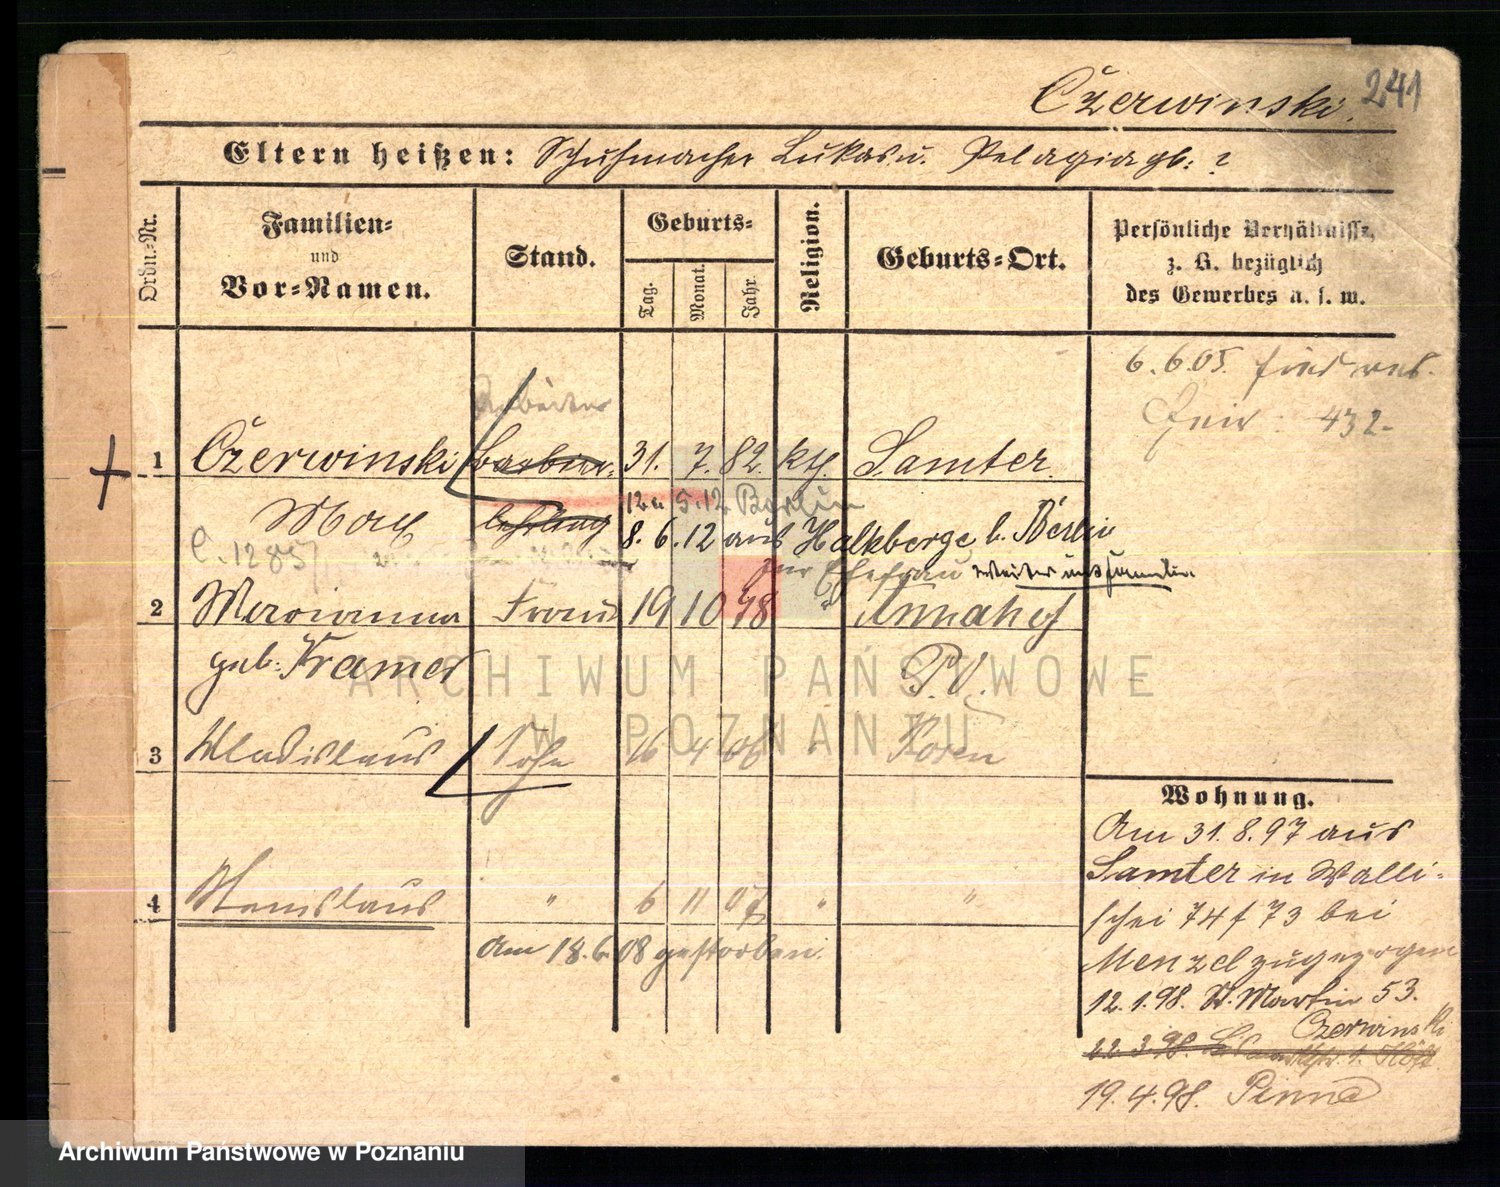 241
Czerwinski.
Eltern heißen: Schuhmacher Lukas u. Pelagia gb: ?
Ordn.=Nr.
Familien= und Vor=Namen.
Stand.
Geburts=
Tag.
Monat.
Jahr.
Religion.
Geburts=Ort.
Persönliche Verhältnisse, z. B. bezüglich des Gewerbes u. s. w.
6.6.05.
432
Arbeiter
1 Czerwinski Barbier= 31. 7. 82. kth. Samter
Max lehrling
12 5.12 Berlin
8.6.12 aus Kalkberge b. Berlin
zur Ehefrau
2 Marianna Frau 19 10 78 Annahof
geb: Kramer P.V.
3 Wladislaus Sohn 16 4 06 " Posen
4 Stanislaus " 6 11 07 " "
Am 18.6.08 gestorben.
Wohnung.
Am 31.8.97 aus
Samter in Walli-
schei 74/73 bei
Menzel zugezogen
12.1.98. St. Martin 53.
Czerwinski
22.3.98.
19.4.98. Pinne
ARCHIWUM PAŃSTWOWE
W POZNANIU
Archiwum Państwowe w Poznaniu